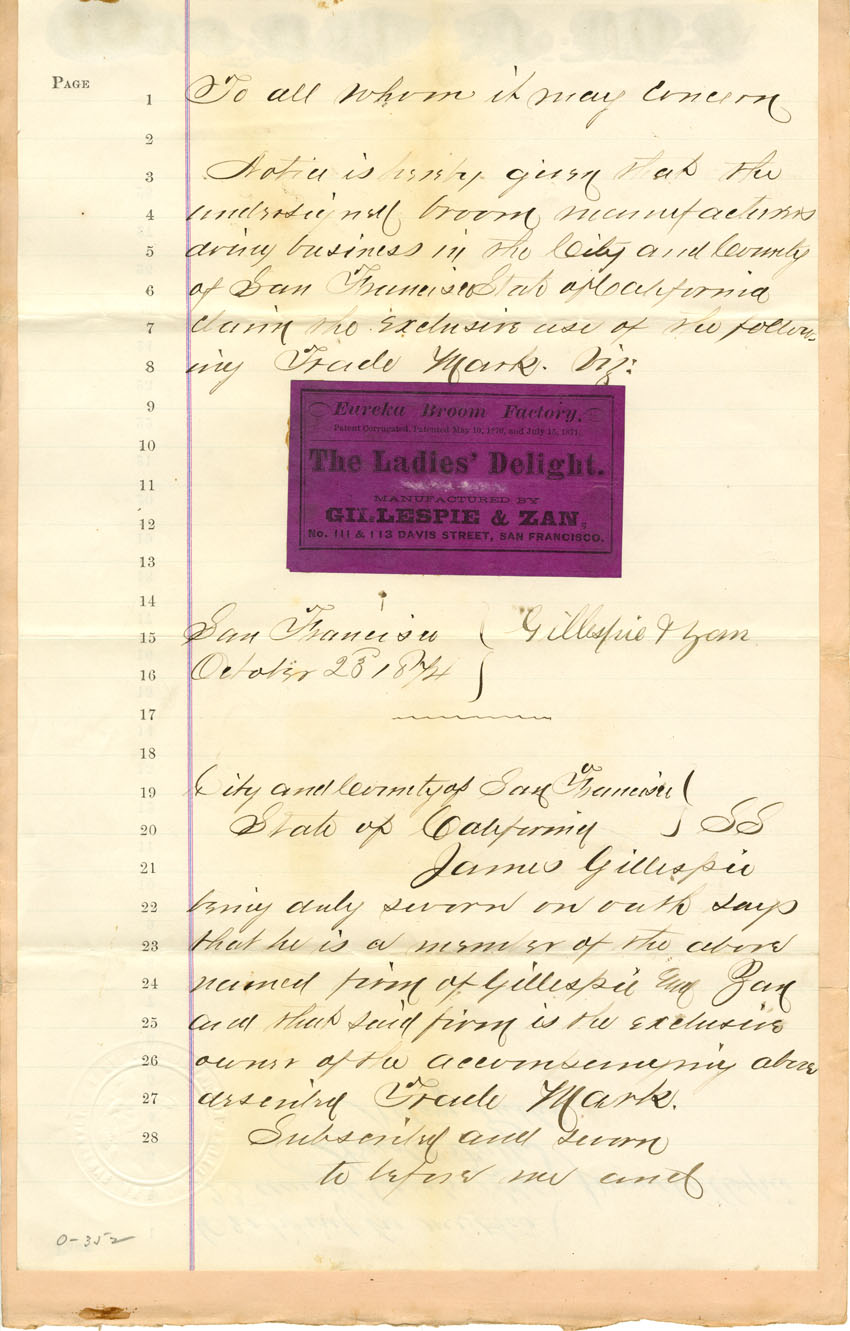 PAGE
1 To all whom it may Concern
2
3 Notice is hereby given that the
4 undersigned broom manufacturers
5 doing business in the City and County
6 of San Francisco State of California
7 claim the exclusive use of the follow-
8 ing Trade Mark. Viz:
9
Eureka Broom Factory.
Patent Corrugated, Patented May 10, 1870, and July 15, 1871.
10
The Ladies' Delight.
11
MANUFACTURED BY
12
GILLESPIE & ZAN,
No. 111 & 113 DAVIS STREET, SAN FRANCISCO.
13
14
15 San Francisco } Gillespie & Zan
16 October 23 1874
17
18
19 City and County of San Francisco }
20 State of California } SS
21 James Gillespie
22 being duly sworn on oath says
23 that he is a member of the above
24 named firm of Gillespie and Zan
25 and that said firm is the exclusive
26 owner of the accompanying above
27 described Trade Mark.
28 Subscribed and sworn
to before me and
0-352